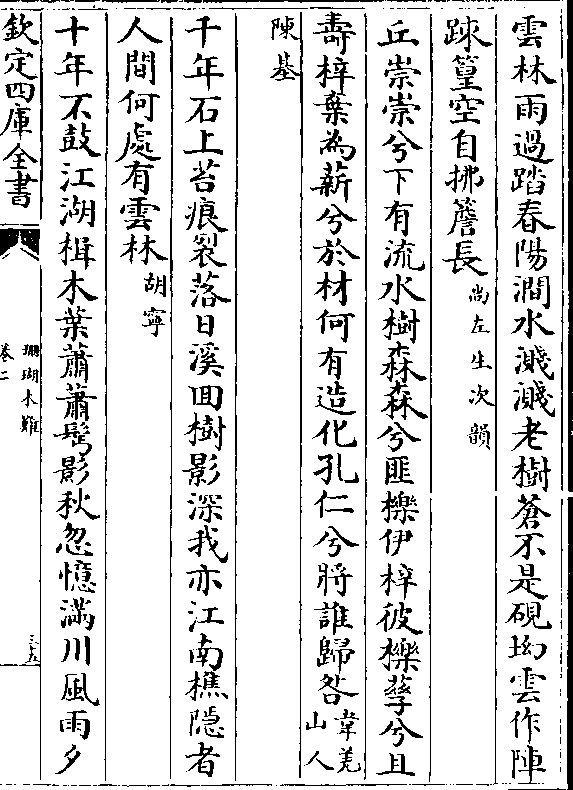 雲林雨過踏春陽澗水濺濺老樹蒼不是硯坳雲作陣
踈篁空自拂簷長尚左生次韻
丘崇崇兮下有流水樹森森兮匪櫟伊梓彼櫟孽兮且
壽梓棄為薪兮於材何有造化孔仁兮將誰歸咎韋羌山人
陳基
千年石上苔痕裂落日溪回樹影深我亦江南樵隠者
人間何處有雲林胡寧
十年不鼓江湖楫木葉蕭蕭髩影秋忽憶滿川風雨夕
欽定四庫全書
珊瑚木難
卷二
三十五